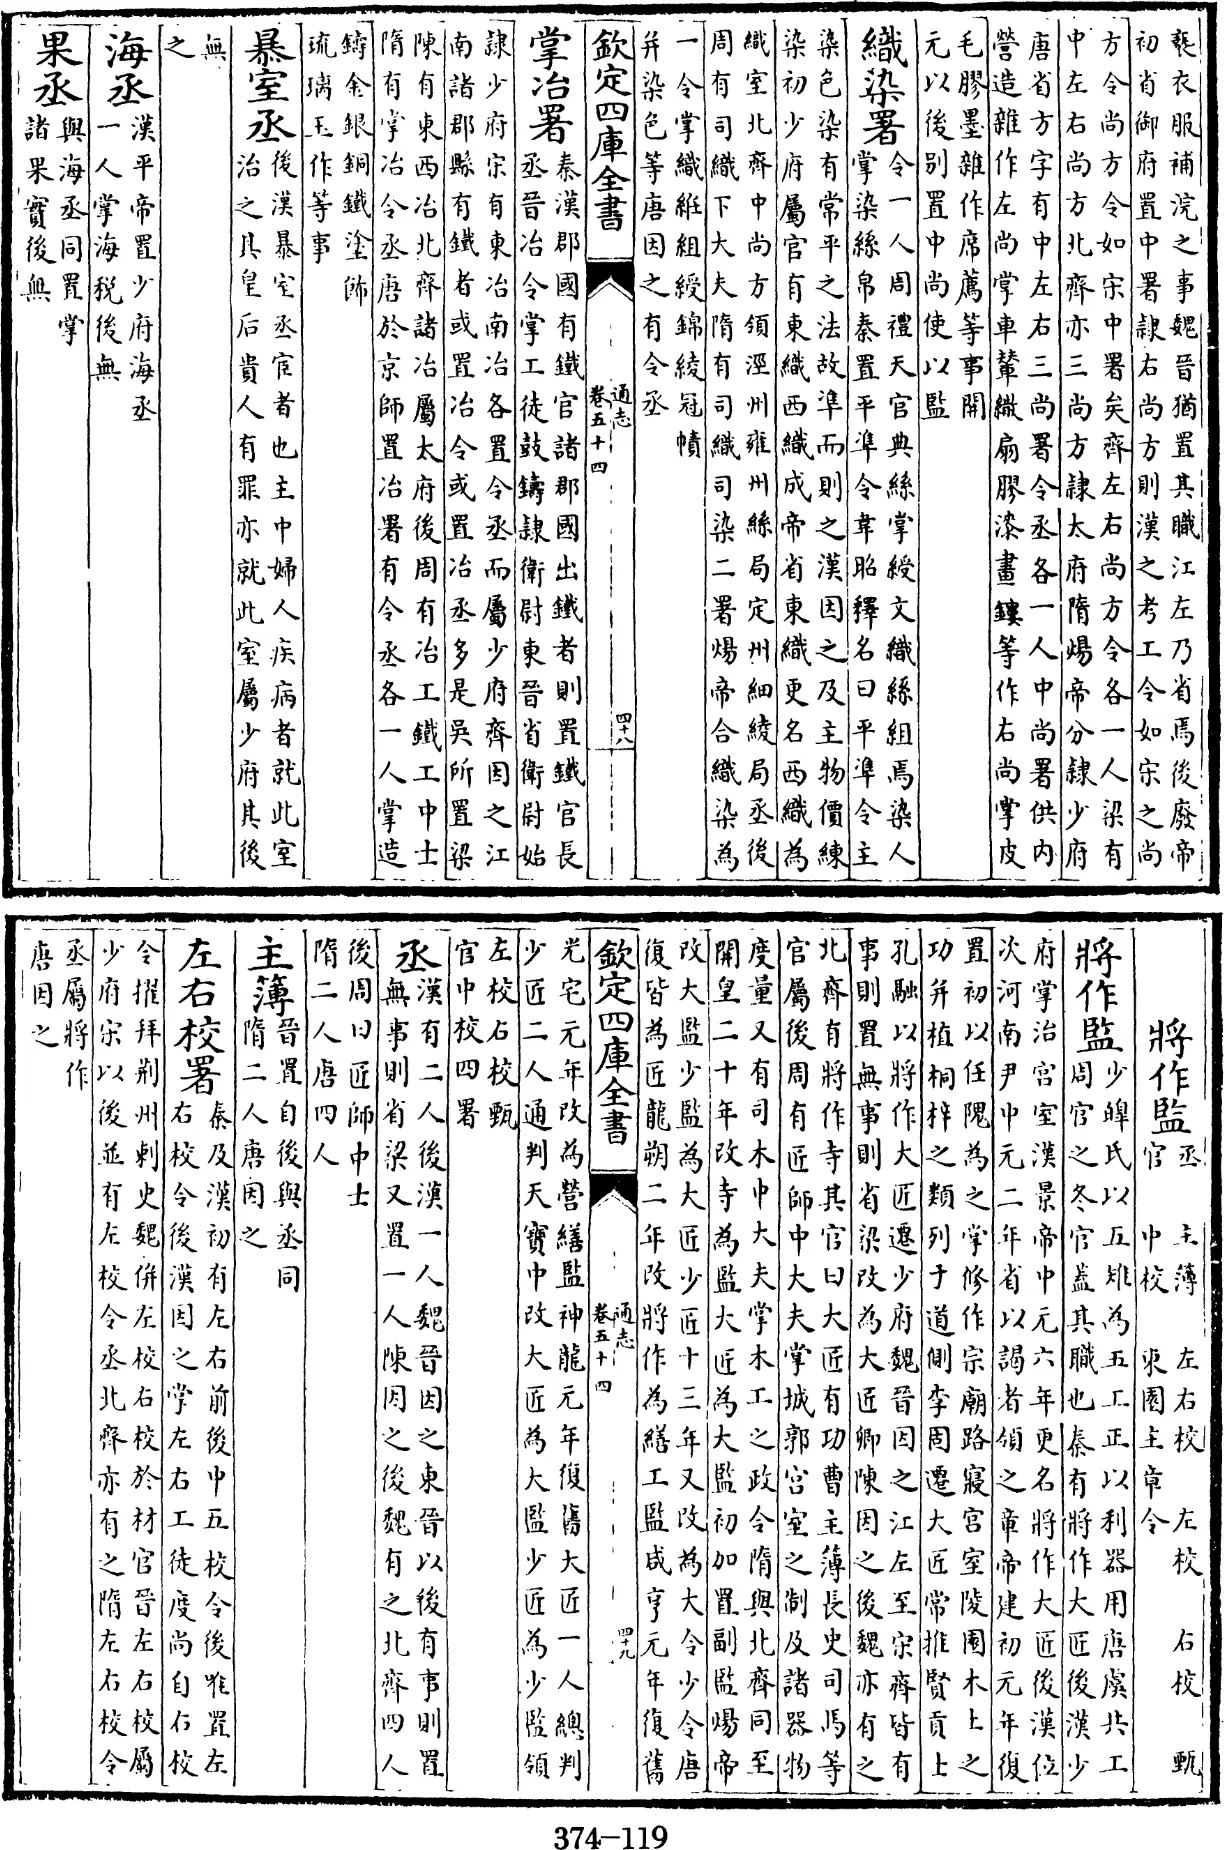 褻衣服補浣之事魏晉猶置其職江左乃省焉後廢帝
初省御府置中署隷右尚方則漢之考工令如宋之尚
方令尚方令如宋中署矣齊左右尚方令各一人梁有
中左右尚方北齊亦三尚方隷太府隋煬帝分隷少府
唐省方字有中左右三尚署令丞各一人中尚署供内
營造雜作左尚掌車輦繖扇膠漆畫鏤等作右尚掌皮
毛膠墨雜作席薦等事開
元以後别置中尚使以監
織染署
令一人周禮天官典絲掌授文織絲組焉染人
掌染絲帛秦置平凖令韋昭釋名曰平凖令主
染色染有常平之法故凖而則之漢因之及主物價練
染初少府屬官有東織西織成帝省東織更名西織為
織室北齊中尚方領涇州雍州絲局定州細綾局丞後
周有司織下大夫隋有司織司染二署煬帝合織染為
一令掌織絍組綬錦綾冠幘
并染色等唐因之有令丞
欽定四庫全書
通志
卷五十四
四十八
掌冶署
秦漢郡國有鐵官諸郡國出鐵者則置鐵官長
丞晉冶令掌工徒鼓鑄隷衛尉東晉省衛尉始
隷少府宋有東冶南冶各置令丞而屬少府齊因之江
南諸郡縣有鐵者或置冶令或置冶丞多是吳所置梁
陳有東西冶北齊諸冶屬太府後周有冶工鐵工中士
隋有掌冶令丞唐於京師置冶署有令丞各一人掌造
鑄金銀銅鐵塗飾
琉璃玉作等事
暴室丞
後漢暴室丞宦者也主中婦人疾病者就此室
治之其皇后貴人有罪亦就此室屬少府其後
無
之
海丞
漢平帝置少府海丞
一人掌海税後無
果丞
與海丞同置掌
諸果實後無
將作監
丞 主薄 左右校 左校 右校 甄
官 中校 東園主章令
將作監
少皥氏以五雉為五工正以利器用唐虞共工
周官之冬官蓋其職也秦有將作大匠後漢少
府掌治宫室漢景帝中元六年更名將作大匠後漢位
次河南尹中元二年省以謁者領之章帝建初元年復
置初以任隗為之掌修作宗廟路寢宫室陵園木土之
功并植桐梓之類列于道側李固遷大匠常推賢貢士
孔融以將作大匠遷少府魏晉因之江左至宋齊皆有
事則置無事則省梁改為大匠卿陳因之後魏亦有之
北齊有將作寺其官曰大匠有功曹主薄長史司馬等
官屬後周有匠師中大夫掌城郭宫室之制及諸器物
度量又有司木中大夫掌木工之政令隋與北齊同至
開皇二十年改寺為監大匠為大監初加置副監煬帝
改大監少監為大匠少匠十三年又改為大令少令唐
復皆為匠龍朔二年改將作為繕工監咸亨元年復舊
欽定四庫全書
通志
卷五十四
四十九
光宅元年改為營繕監神龍元年復舊大匠一人總判
少匠二人通判天寶中改大匠為大監少匠為少監領
左校右校甄
官中校四署
丞
漢有二人後漢一人魏晉因之東晉以後有事則置
無事則省梁又置一人陳因之後魏有之北齊四人
後周曰匠師中士
隋二人唐四人
主薄
晉置自後與丞同
隋二人唐因之
左右校署
秦及漢初有左右前後中五校令後惟置左
右校令後漢因之掌左右工徒度尚自右校
令擢拜荆州刺史魏併左校右校於材官晉左右校屬
少府宋以後並有左校令丞北齊亦有之隋左右校令
丞屬將作
唐因之
374-119